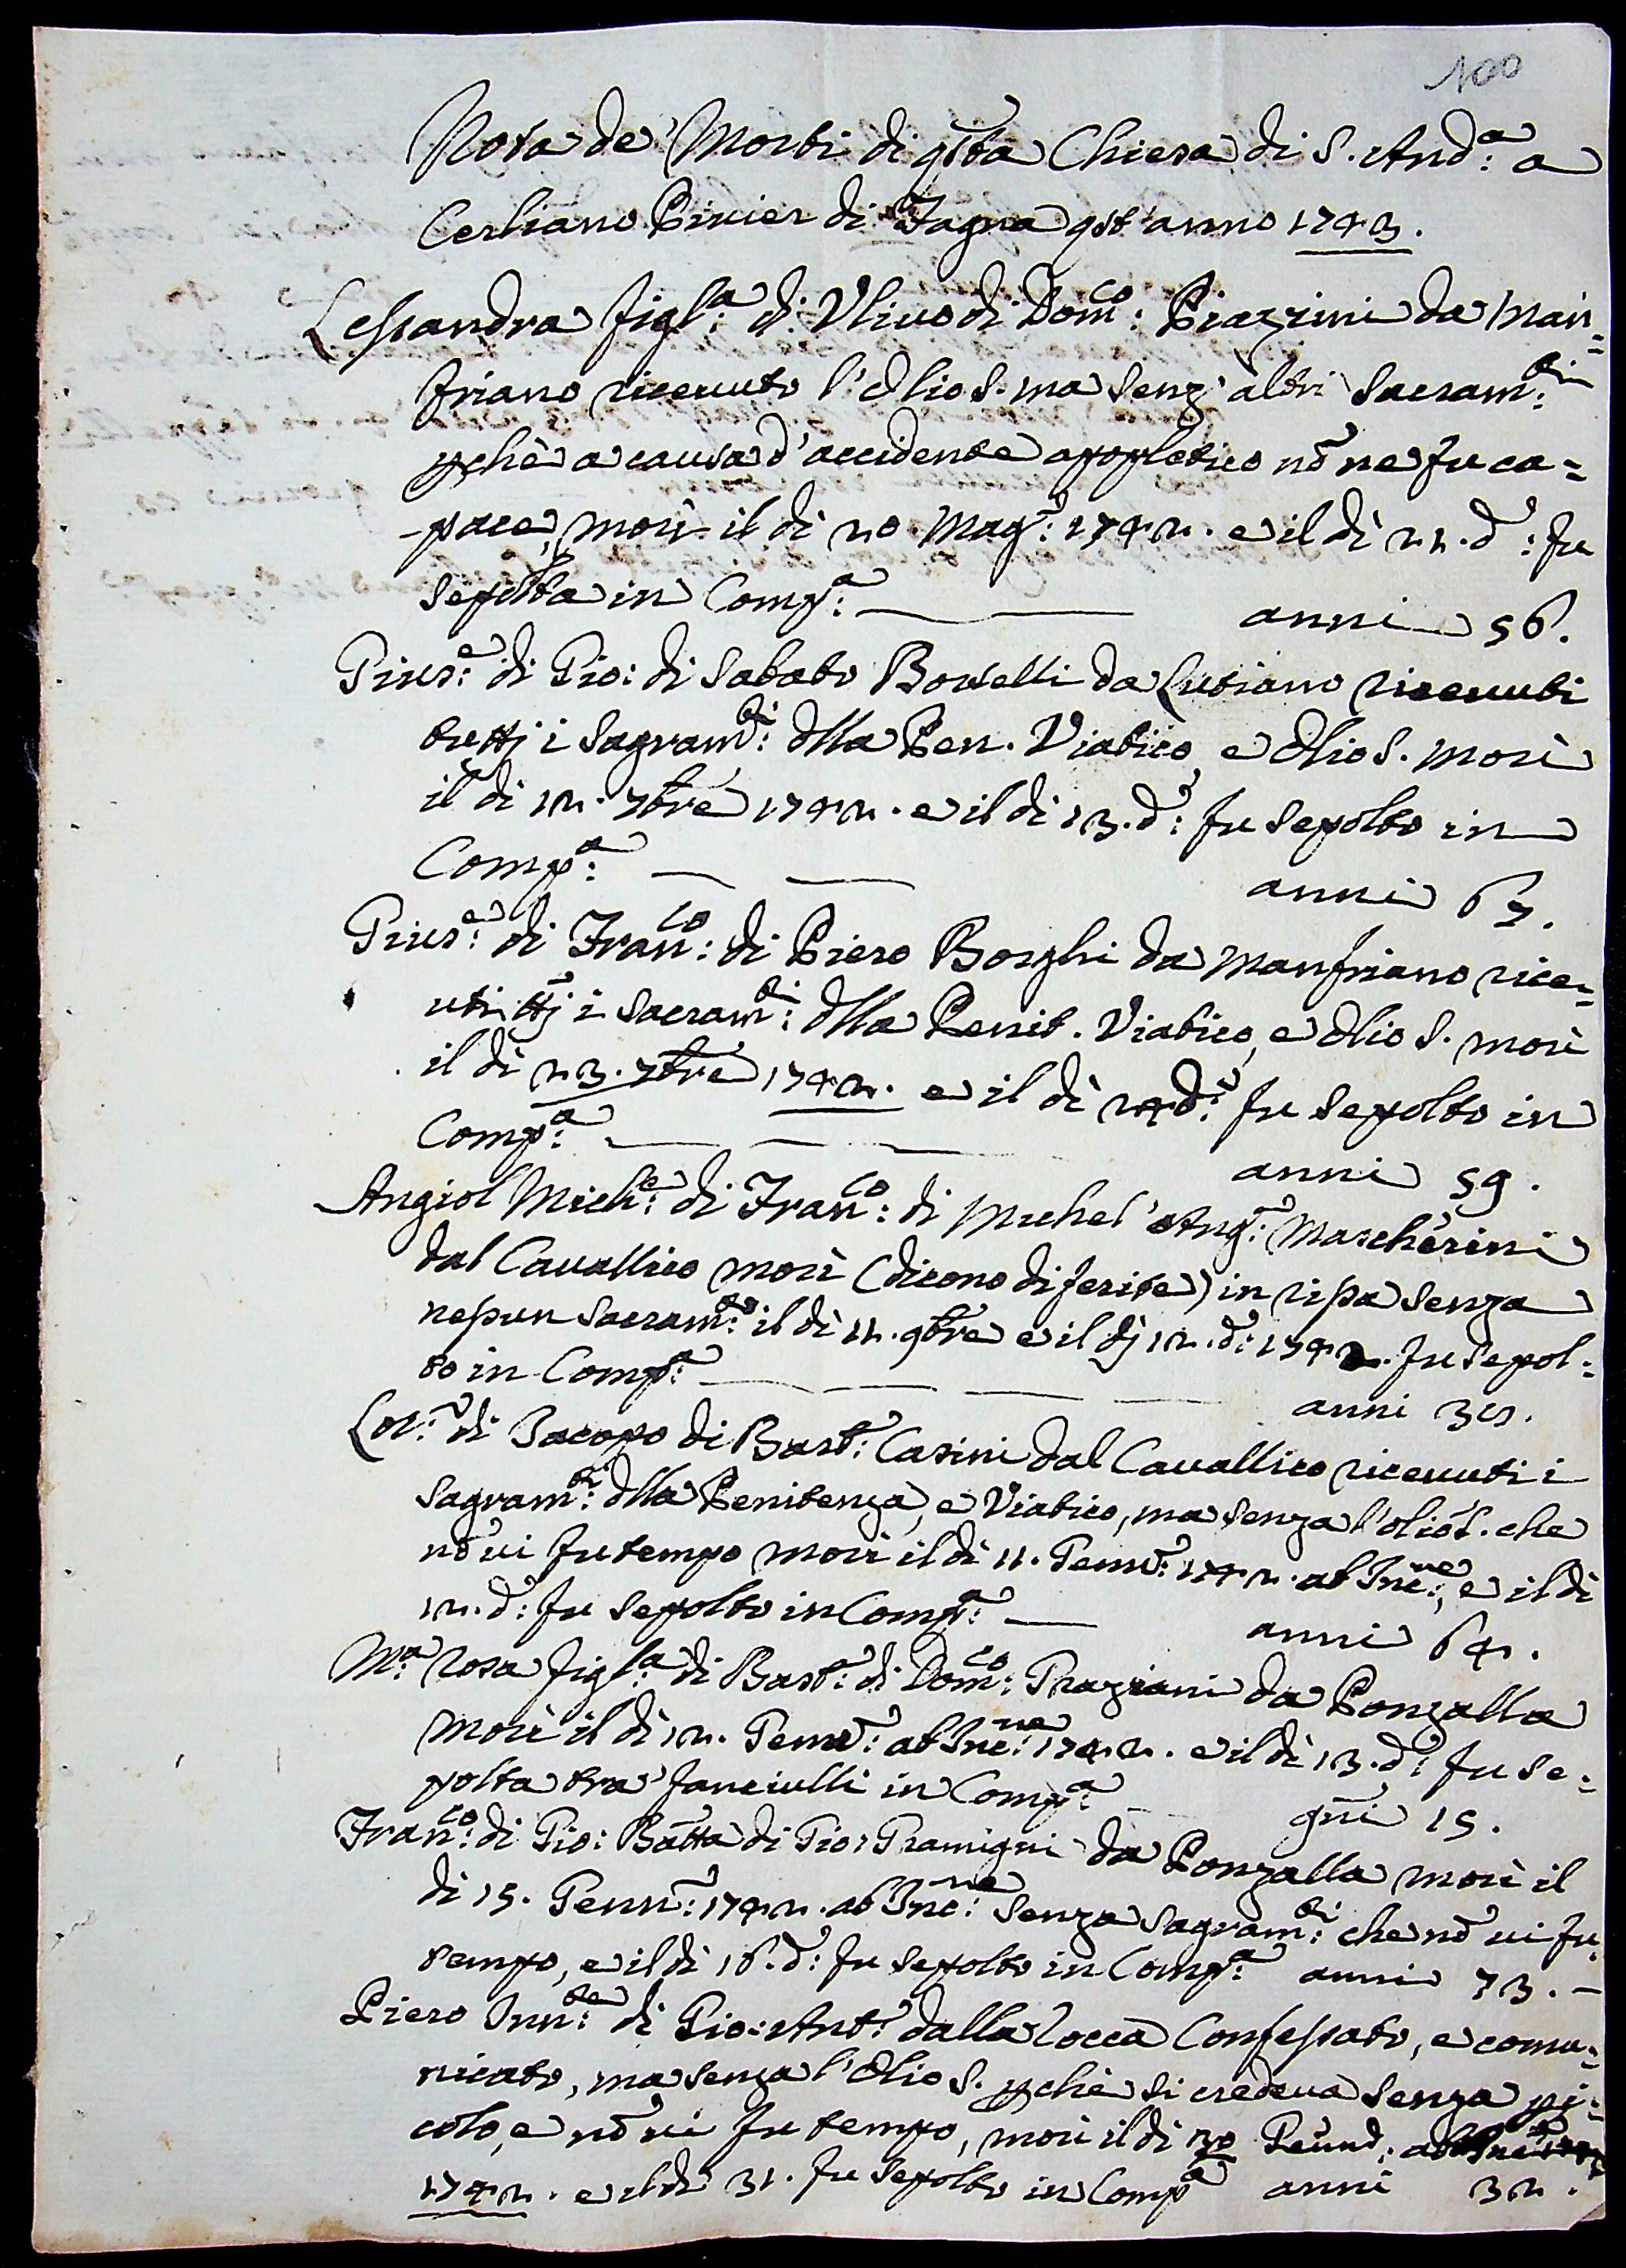 100
Nota de' Morti di qsta Chiesa di S. And:a a
Cerliano Pivier di Fagna qst'anno 1743.
Lessandra figl:a di Ulivo di Dom:co Piazzini da Man=
friano ricevuto l'Olio S. ma senz'altri Sacram:ti
pchè a causa d'accidente apopletico nō ne fu ca=
pace, morì il dì 20. Mag:o 1742. e il dì 21. d:o fu
sepolta in Comp:a anni 56.
Gius:e di Gio: di Sabato Borselli da Lutiano ricevuti
tuttj i Sagram:ti dlla Pen. Viatico, e Olio S. morì
il dì 12. 7bre 1742. e il dì 13. d:o fu sepolto in
Comp:a anni 67.
Gius:e di Fran:co di Piero Borghi da Manfriano rice=
uti ttj i Sacram:ti dlla Penit. Viatico, e Olio S. morì
il dì 23. 7bre 1742. e il dì 24 d:o fu sepolto in
Comp:a anni 59.
Angiol Mich:e di Fran:co di Michel'Ang:o Mascherini
dal Cavallico morì (dicono di ferite) in ripa senza
nessun Sacram:to il dì 11. 9bre e il dj 12. d:o 1742. fu sepol=
to in Comp:a anni
Lor:o di Jacopo di Bast:o Casini dal Cavallico ricevuti i
Sagram:ti dlla Penitenza, e Viatico, ma senza l'olio S. che
nō vi fu tempo morì il dì 11. Genn:o 1742. ab Inc:ne, e il dì
12. d:o fu sepolto in Comp:a anni 64.
M:a Rosa figl:a di Bast:o di Dom:co Graziani da Ponzalla
morì il dì 12. Genn:o ab Inc:ne 1742. e il dì 13. d:o fu se=
polta tra' fanciulli in Comp:a gni 15.
Fran:co di Gio: Batta di Gio: Gramigni da Ponzalla morì il
dì 15. Genn:o 1742. ab Inc:ne senza Sagram:ti che nō vi fu
tempo, e il dì 16. d:o fu sepolto in Comp:a anni 73.
Piero Inn:te di Gio: Ant:o dalla Rocca Confessato, e comu=
nicato, ma senza l'Olio S. pchè si credeva senza pi=
colo, e nō vi fu tempo, morì il dì 30
1742. e il dì 31. fu sepolto in Comp:a anni 32.